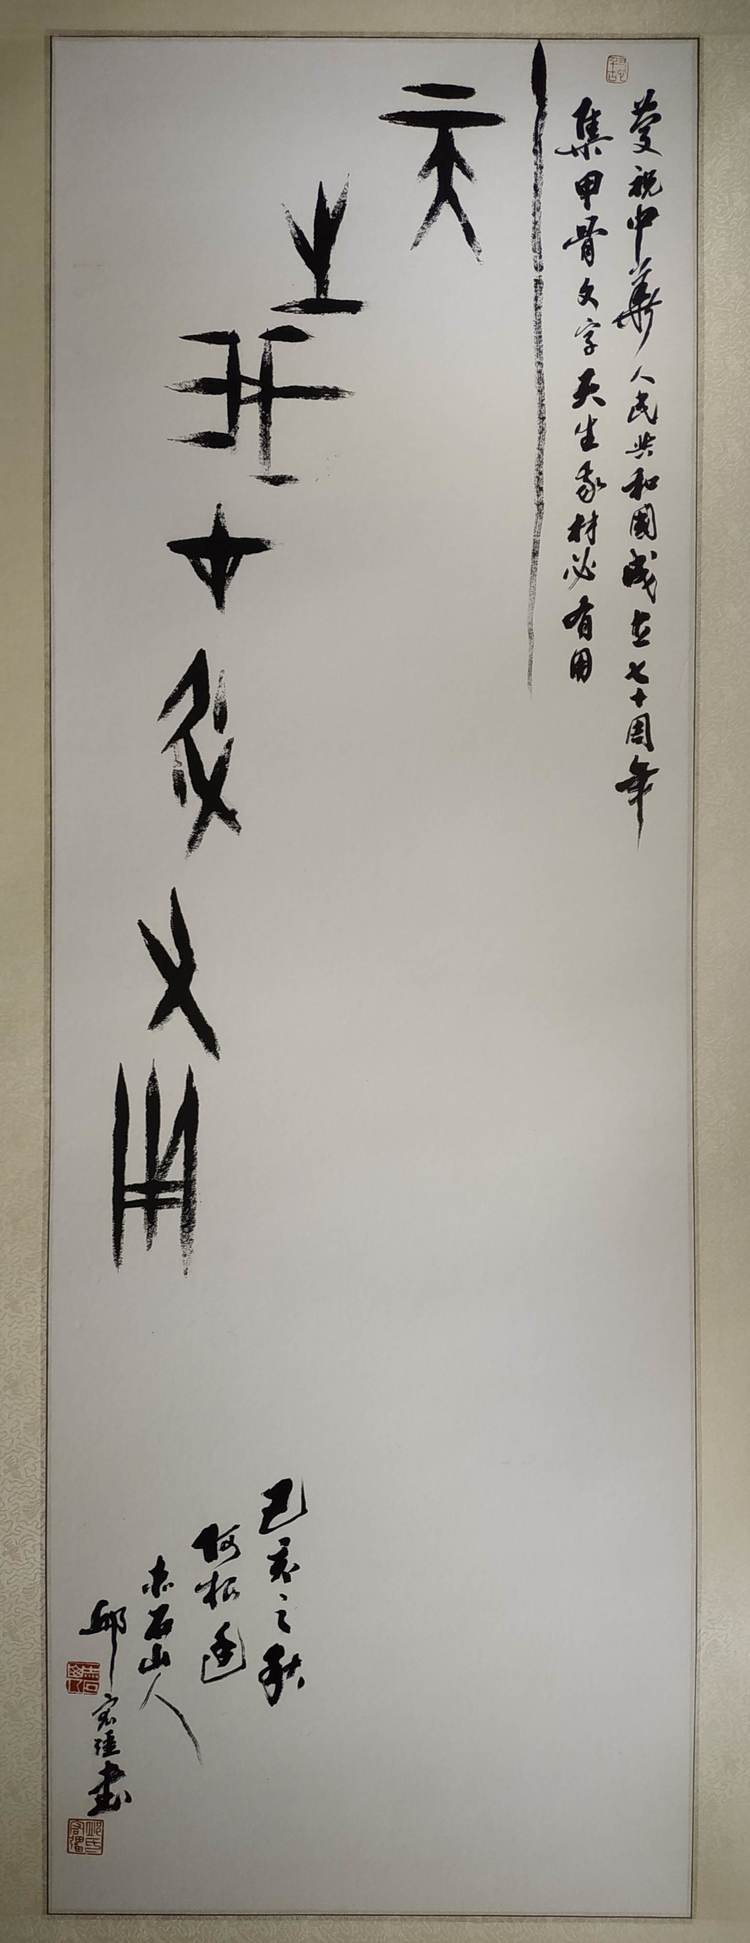 慶祝中華人民共和國成立七十周年
集甲骨文字天生我材必有用
天生我才必有用
己亥之秋
阿根廷
赤石山人
邱書